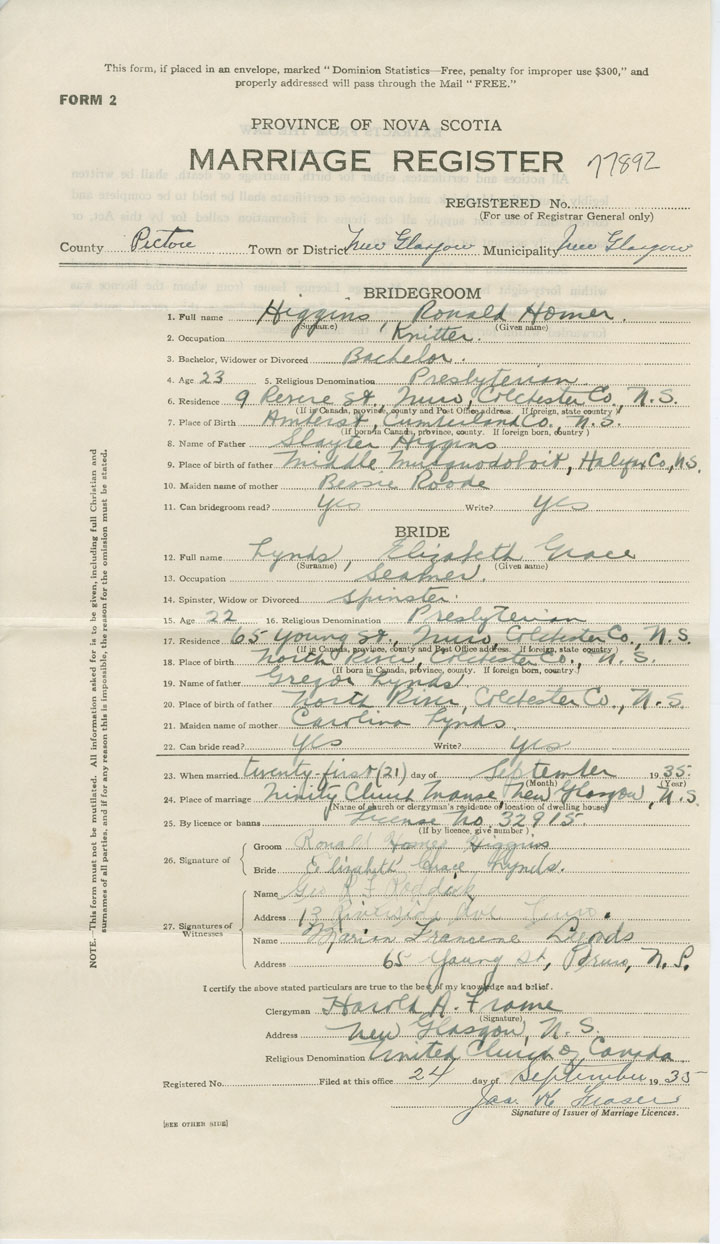 This form, if placed in an envelope, marked "Dominion Statistics—Free, penalty for improper use $300," and
properly addressed will pass through the Mail "FREE."
FORM 2
PROVINCE OF NOVA SCOTIA
MARRIAGE REGISTER 77892
REGISTERED No.
(For use of Registrar General only)
County Pictou Town or District New Glasgow Municipality New Glasgow
BRIDEGROOM
1. Full name Higgins, Ronald Homer.
(Surname) (Given name)
2. Occupation Knitter.
3. Bachelor, Widower or Divorced Bachelor.
4. Age 23 5. Religious Denomination Presbyterian
6. Residence 9 Revere St., Truro, Colchester Co., N.S.
(If in Canada, province, county and Post Office address. If foreign, state country)
7. Place of Birth Amherst, Cumberland Co., N.S.
(If born in Canada, province, county. If foreign born, country)
8. Name of Father Slayter Higgins
9. Place of birth of father Middle Musquodoboit, Halifax Co., N.S.
10. Maiden name of mother Bessie Roode
11. Can bridegroom read? Yes Write? Yes
BRIDE
12. Full name Lynds, Elizabeth Grace
(Surname) (Given name)
13. Occupation Seamer.
14. Spinster, Widow or Divorced Spinster.
15. Age 22 16. Religious Denomination Presbyterian
17. Residence 65 Young St., Truro, Colchester Co., N.S.
(If in Canada, province, county and Post Office address. If foreign, state country)
18. Place of birth North River, Colchester Co., N.S.
(If born in Canada, province, county. If foreign born, country)
19. Name of father Gregor Lynds
20. Place of birth of father North River, Colchester Co., N.S.
21. Maiden name of mother Carolina Lynds
22. Can bride read? Yes Write? Yes
23. When married twenty-first (21) day of September 1935.
(Month) (Year)
24. Place of marriage Trinity Church Manse, New Glasgow, N.S.
(Name of church or clergyman's residence or location of dwelling house)
25. By licence or banns License No. 32915.
(If by licence, give number)
26. Signature of
Groom Ronald Homer Higgins
Bride Elizabeth Grace Lynds.
27. Signatures of Witnesses
Name Geo
Address 13 Riverside Ave Truro.
Name Marion Francene Lynds
Address 65 Young St, Truro, N.S.
I certify the above stated particulars are true to the best of my knowledge and belief.
Clergyman Harold A. Frame
(Signature)
Address New Glasgow, N.S.
Religious Denomination United Church of Canada
Registered No. Filed at this office 24 day of September 1935
Jas. Fraser
Signature of Issuer of Marriage Licences.
[SEE OTHER SIDE]
NOTE.—This form must not be mutilated. All information asked for is to be given, including full Christian and
surnames of all parties, and if for any reason this is impossible, the reason for the omission must be stated.